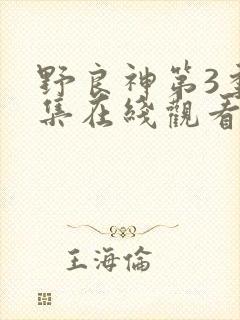 野良神第3季
集在綫觀看
王海倫